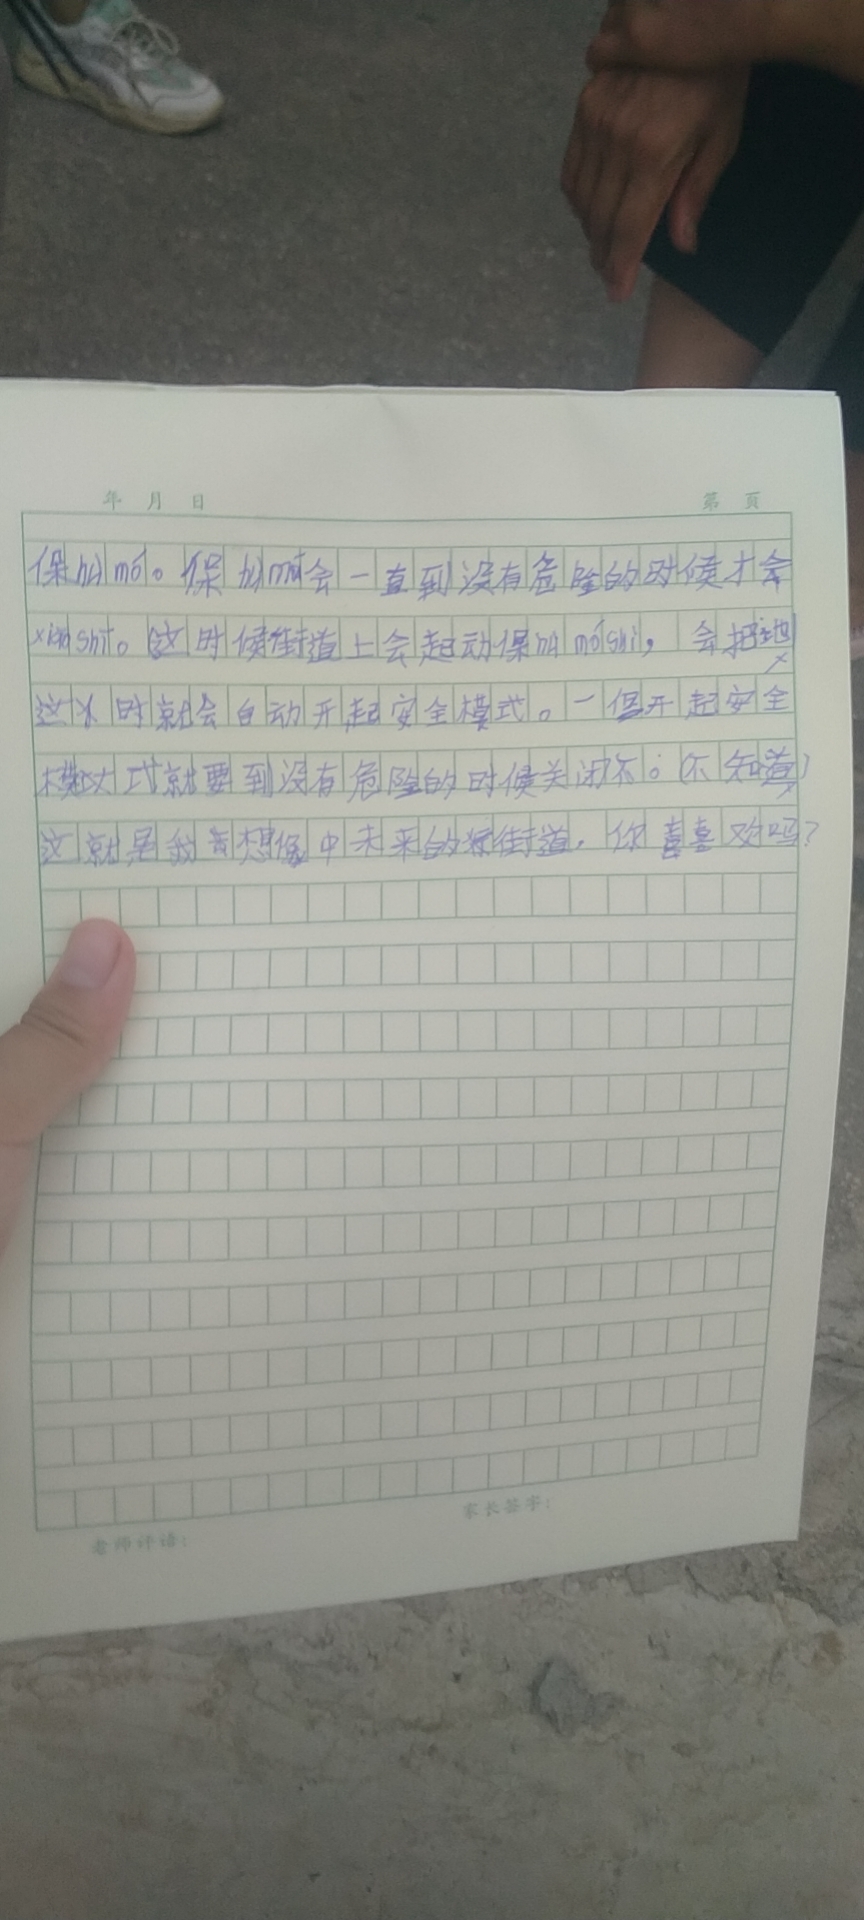 年 月 日 第 页
保hù mó。保hù mó会一直到没有危险的时候才会
xiāo shī。这时候街道上会起动保hù mó shì，会把地
这 时就会自动开起安全模式。一但开起安全
模式就要到没有危险的时候关闭不。(不知道)
这就是我 想像中未来的 街道，你喜喜欢吗？
老师评语： 家长签字：